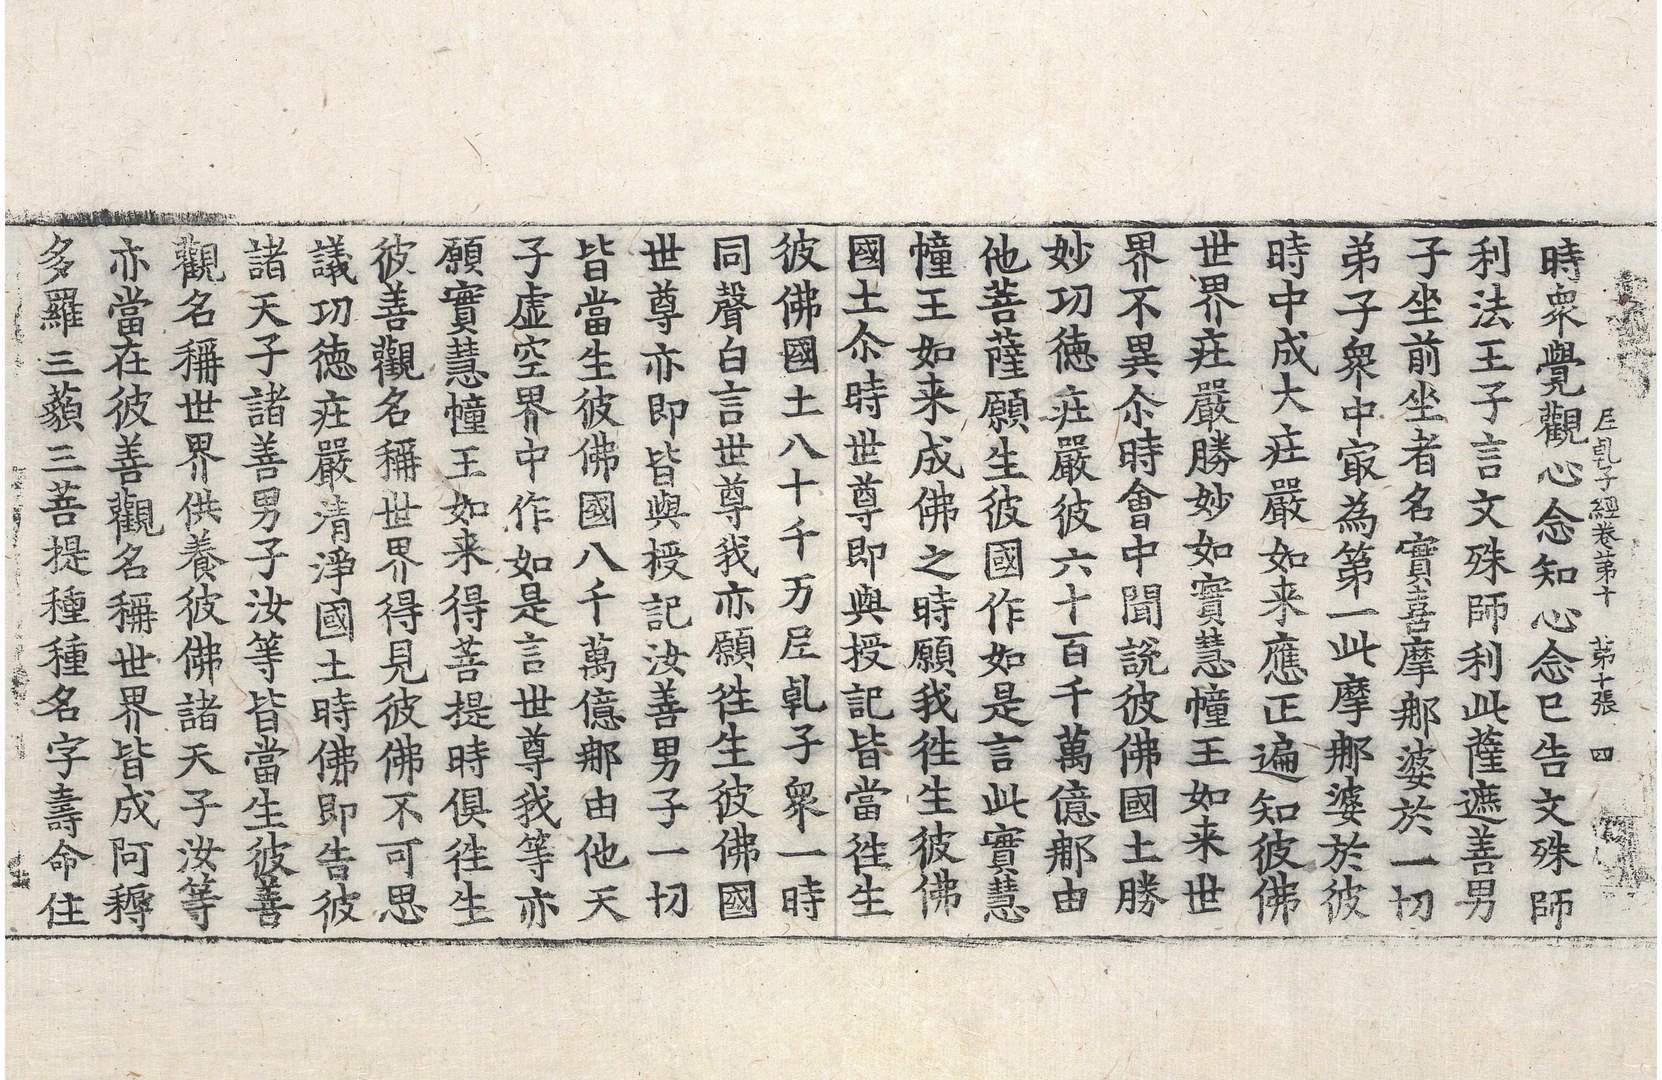 尼乹子經卷第十　第十張　四
時衆覺觀心念知心念已告文殊師
利法王子言文殊師利此薩遮善男
子坐前坐者名實喜摩那婆於一切
弟子衆中冣為第一此摩那婆於彼
時中成大庄嚴如来應正遍知彼佛
世界庄嚴勝妙如實慧幢王如来世
界不異尒時會中聞說彼佛國土勝
妙功德庄嚴彼六十百千萬億那由
他菩薩願生彼國作如是言此實慧
幢王如来成佛之時願我徃生彼佛
國土尒時世尊即與授記皆當徃生
彼佛國土八十千万尼乹子衆一時
同聲白言世尊我亦願徃生彼佛國
世尊亦即皆與授記汝善男子一切
皆當生彼佛國八千萬億那由他天
子虛空界中作如是言世尊我等亦
願實慧幢王如来得菩提時俱徃生
彼善觀名稱世界得見彼佛不可思
議功德庄嚴清淨國土時佛即告彼
諸天子諸善男子汝等皆當生彼善
觀名稱世界供養彼佛諸天子汝等
亦當在彼善觀名稱世界皆成阿耨
多羅三藐三菩提種種名字壽命住